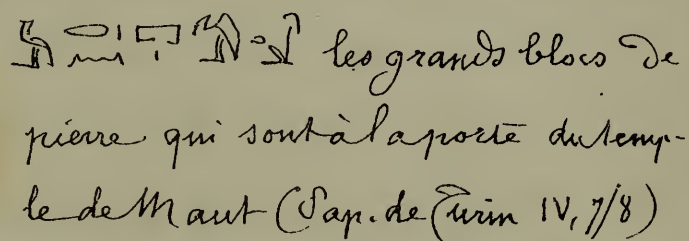 les grands blocs de
pierre qui sont à la porte du temp-
le de Maut (Pap. de Turin IV, 7/8)